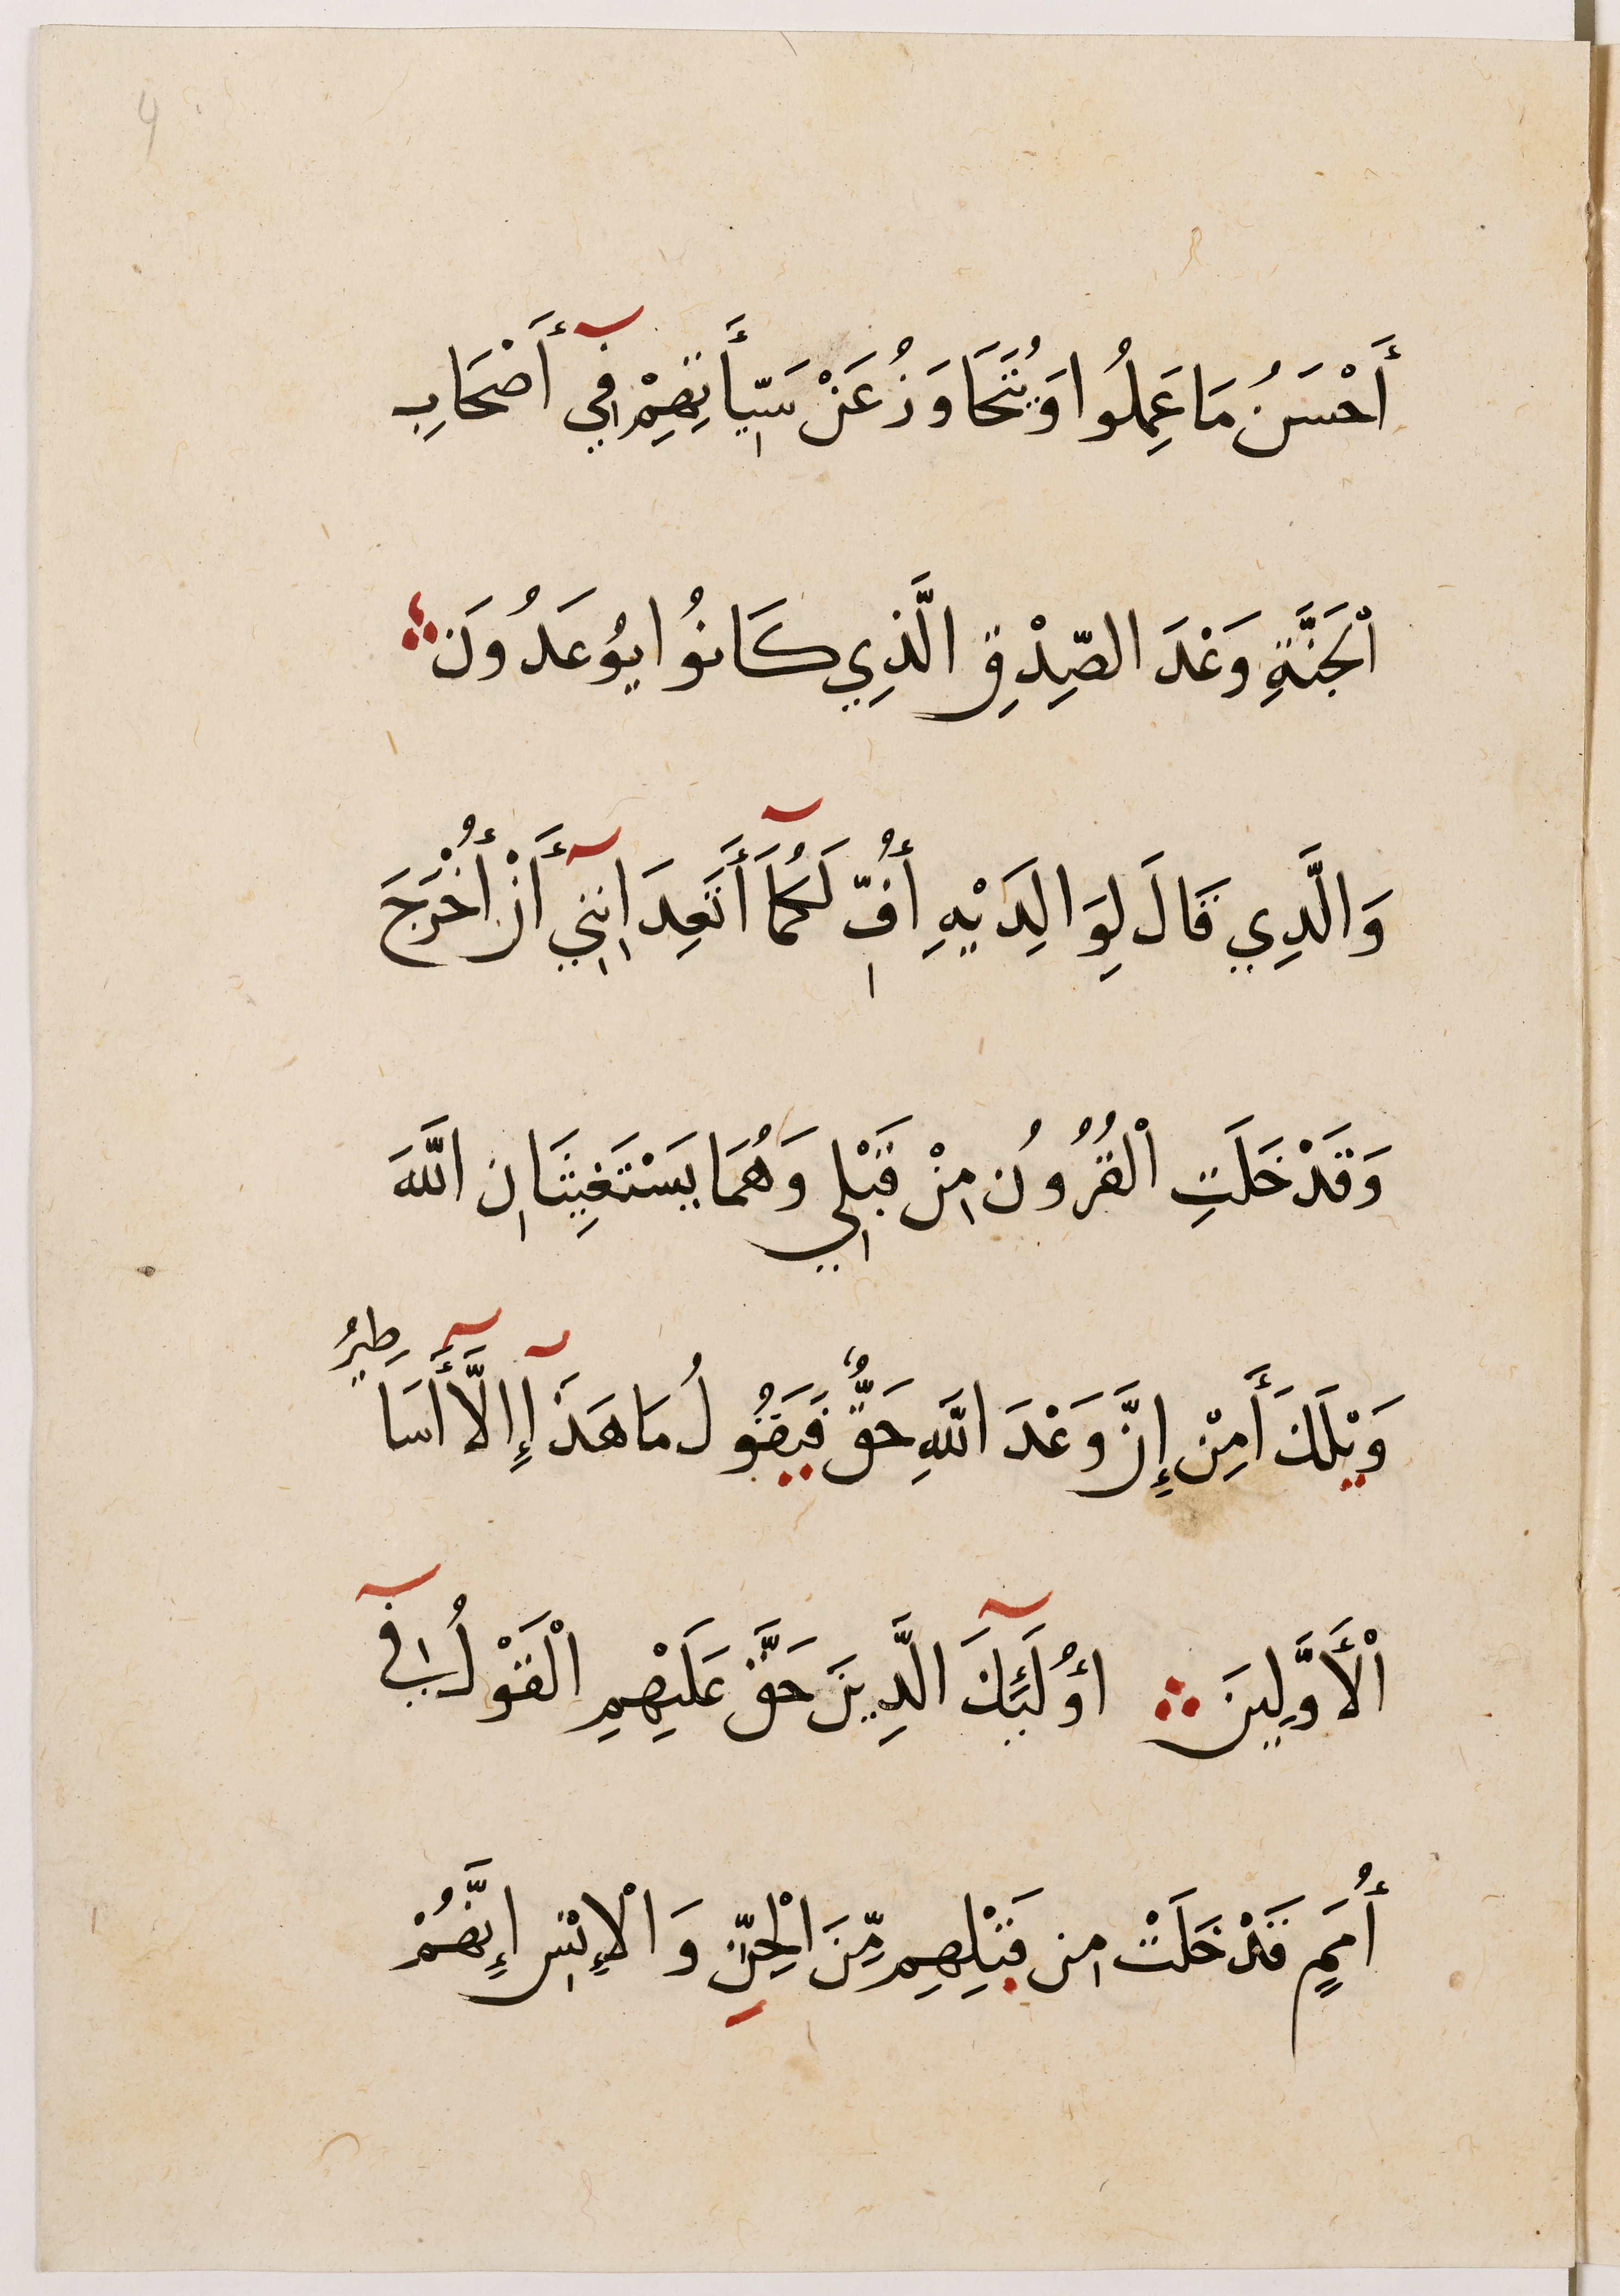 أَحْسَنُ مَا عَمِلُوا وَيُتَجَاوَزُ عَنْ سَيِّأَتِهِمْ فِي أَصْحَابِ
اْلجَنَّةِ وَعْدَ الصِّدْقِ الَّذِي كَانُوا يُوعَدُونَ
وَالَّدِي قَالَ لِوَالِدَيْهِ أُفٍّ لَكُمَآ أَتَعِدَانِنِي أَنْ أُخْرَجَ
وَقَدْ خَلَتِ اْلقُرُونُ مِنْ قَبْلِي وَهُمَا يَسْتَغِيثَانِ اللَّهَ
وَيْلَكَ أَمِنْ إِنَّ وَعْدَ اللَّهِ حَقٌّ فَيَقُولُ مَا هَذَآ إِلَّا أَسَاطِيرُ
اْلأَوَّلِينَ أُوْلَئِكَ الَّدِينَ حَقَّ عَلَيْهِمِ اْلقَوْلُ فِي
أُمَمٍ قَدْ خَلَتْ مِن قَبْلِهِم مِّنَ الْجِنِّ وَالْإِنْسِ إِنَّهُمْ